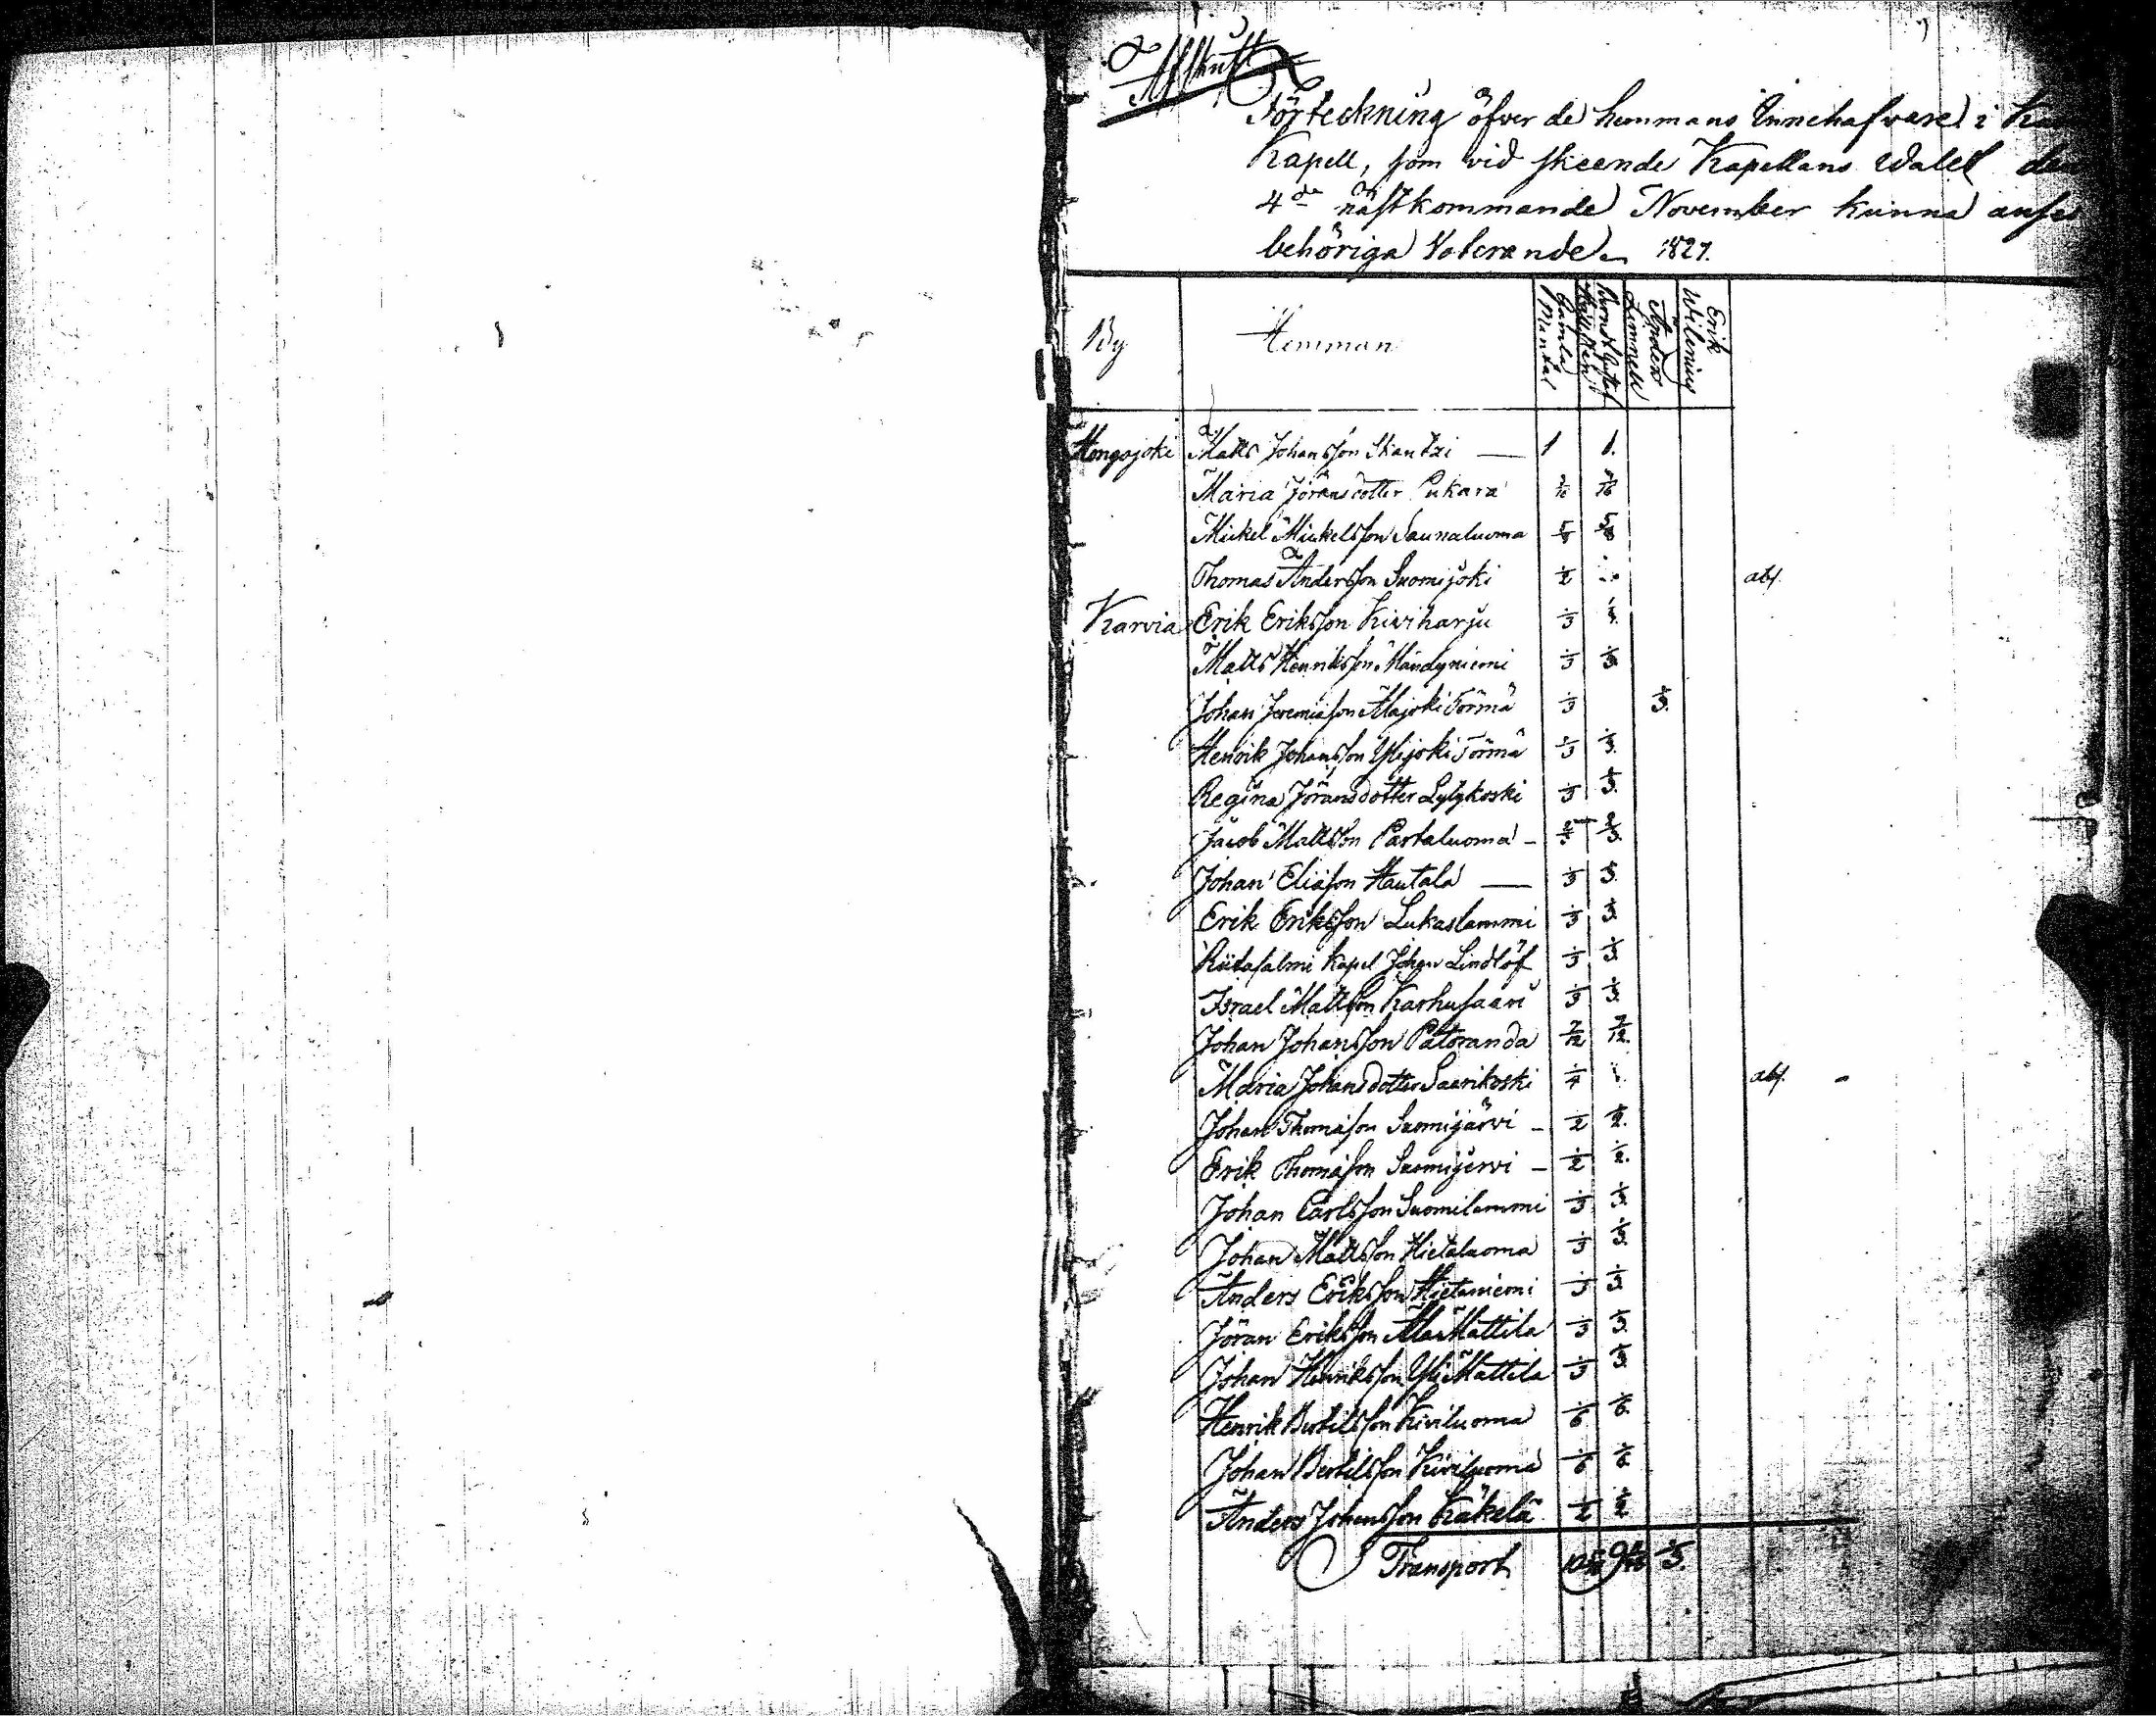 Afskrift
Förteckning öfver de hemmans Innehafvare i
Kapell, som vid skeende Kapellans Valet den
4de nästkommande November kunna anse
behöriga Voterande. 1827.
By Hemman Gamla Mantal Anders Limnell Erik Wilenius
Hongojoki Matts Johansson Skantzi — 1 1.
Maria Jöransdotter Pukara 3/16 3/16
Mickel Mickelsson Saunaluoma 5/8 5/8
Thomas Andersson Suomijoki 1/2 abs.
Karvia Erik Eriksson Kiviharju 1/3 1/3.
Matts Henriksson Mändyniemi 1/3 1/3.
Johan Jeremiasson Alajoki Törmä 1/3 1/3.
Henrik Johansson Ylijoki Törmä 1/3 1/3.
Regina Jöransdotter Lylykoski 1/3 1/3.
Jacob Mattsson Pastaluoma – 2/3 2/3.
Johan Eliasson Hautala — 1/3 1/3.
Erik Eriksson Lukaslammi 1/3 1/3.
Riitasalmi Kapel Johan Lindlöf 1/3 1/3.
Israel Mattsson Karhusaari 1/3 1/3.
Johan Johansson Patoranda 7/12 7/12.
Maria Johansdotter Saarikoski 1/4 abs. -
Johan Thomasson Suomijärvi – 1/2 1/2.
Erik Thomasson Suomijervi – 1/2 1/2.
Johan Carlsson Suomilammi 1/3 1/3.
Johan Mattsson Hietaluoma 1/3 1/3.
Anders Eriksson Hietaniemi 1/3 1/3.
Jöran Eriksson Ala Mattila 1/3 1/3.
Johan Henriksson Yli Mattila 1/3 1/3.
Henrik Bertilsson Kiviluoma 1/6 1/6.
Johan Bertilsson Kiviluoma 1/6 1/6.
Anders Johansson Käkelä 1/2 1/2
Transport 1/3.